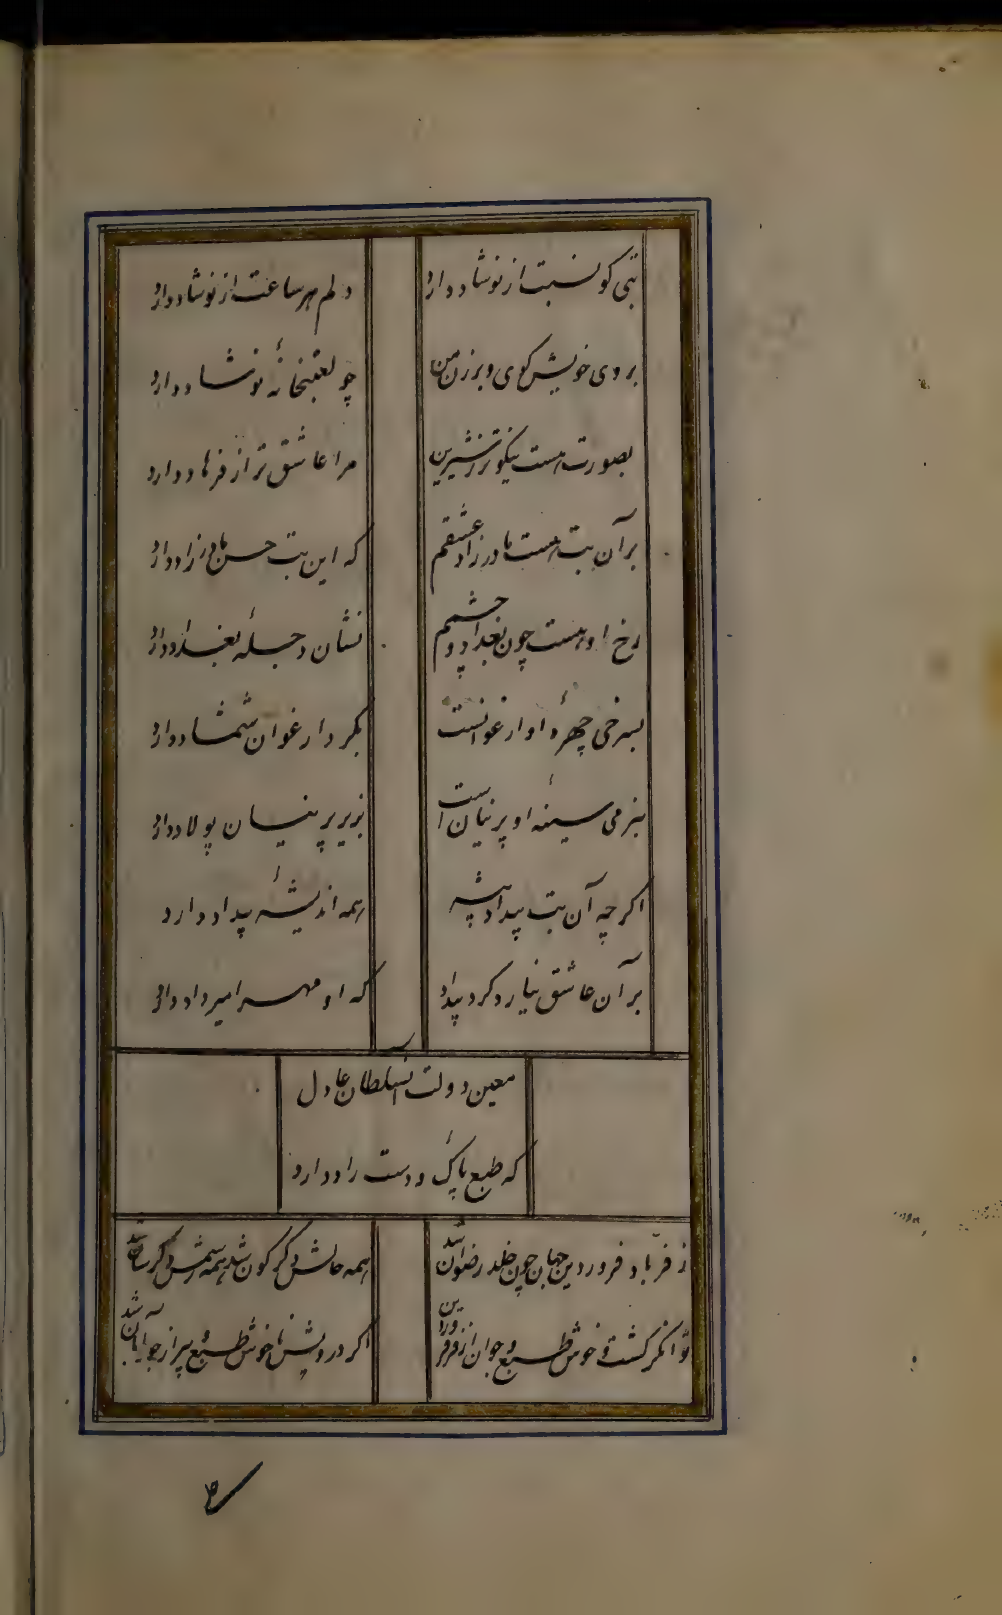 بتی کو نسبت از نوشاد دارد
دلم هر ساعت از نو شاد دارد
بروی خویش کوی و برزن من
چو لعبتخانهٔ نوشاد دارد
بصورت هست نیکوتر ز شیرین
مرا عاشق تر از فرهاد دارد
بر آن بت هست مادرزاد عشقم
که این بت حسن مادرزاد دارد
رخ او هست چون بغداد و چشمم
نشان دجلهٔ بغداد دارد
بسرخی چهرهٔ او ارغوانست
بکردار غوان شمشاد دارد
بنرمی سینهٔ او پرنیان است
بزیر پرنیان پولاد دارد
اگرچه آن بت بیداد پیشه
همه اندیشهٔ بیداد دارد
بر آن عاشق نیارد کرد بیداد
که او مهر امیر داد دارد
معین دولت آن سلطان عادل
که طبع پاک و دست راد دارد
ز فر باد فروردین جهان چون خلد رضوان شد
همه حالش دگرگون شد همه رسمش دگر سان شد
توانگر گشت و خوش طبع و جوان از فر فروردین
اگر درویش ناخوش طبع و پیر از جور آبان شد